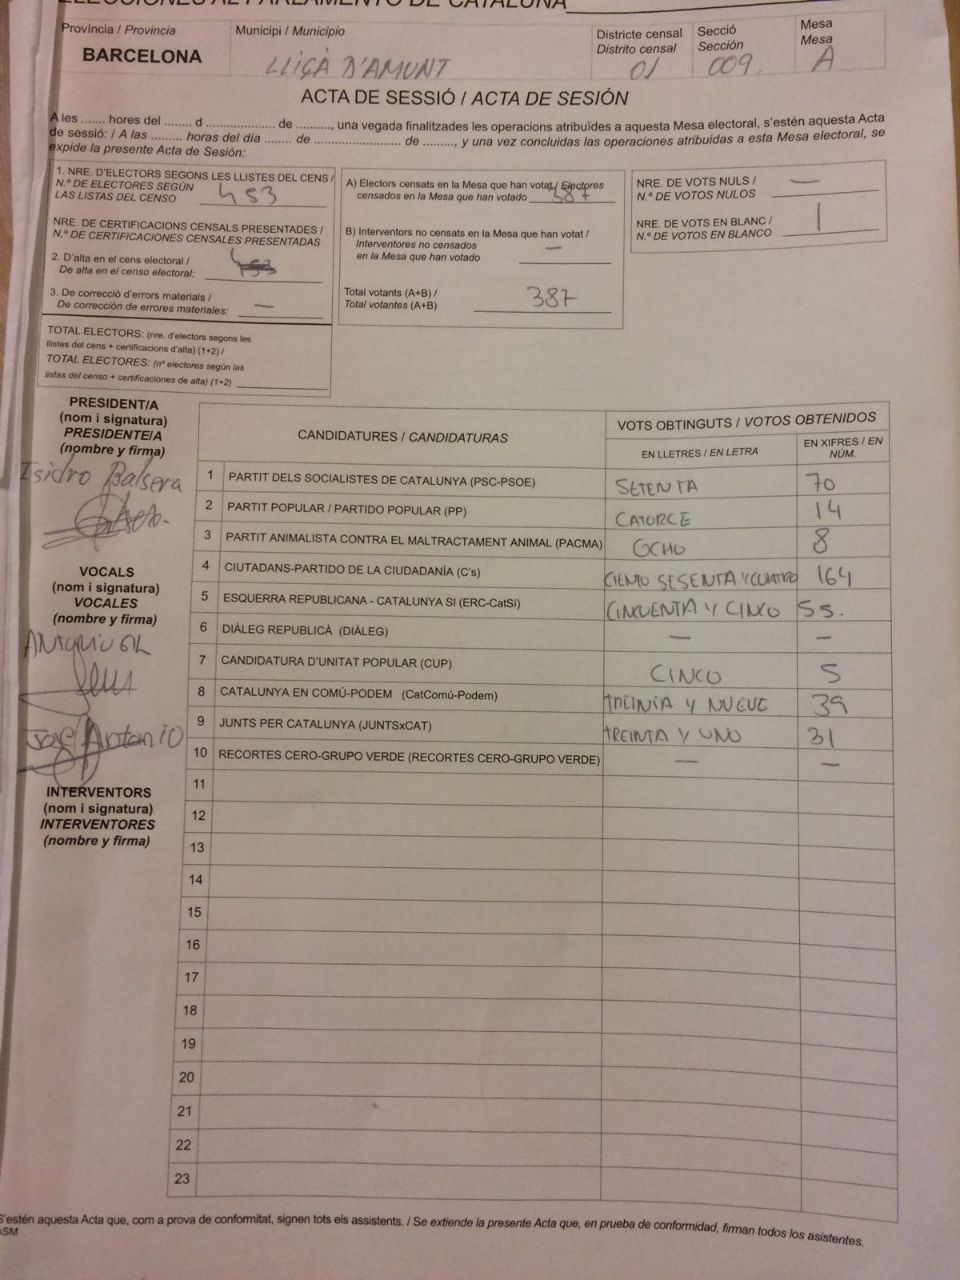 ELECCIONES AL PARLAMENTO DE CATALUÑA
Província / Provincia
BARCELONA
Municipi / Municipio
LLIÇÀ D'AMUNT
Districte censal
Distrito censal
01
Secció
Sección
009.
Mesa
Mesa
A
ACTA DE SESSIÓ / ACTA DE SESIÓN
A les ....... hores del ........ d .................... de .........., una vegada finalitzades les operacions atribuïdes a aquesta Mesa electoral, s'estén aquesta Acta
de sessió: / A las ......... horas del día ........ de ........................ de ........., y una vez concluidas las operaciones atribuidas a esta Mesa electoral, se
expide la presente Acta de Sesión:
1. NRE. D'ELECTORS SEGONS LES LLISTES DEL CENS /
N.º DE ELECTORES SEGÚN
LAS LISTAS DEL CENSO
453
NRE. DE CERTIFICACIONS CENSALS PRESENTADES /
N.º DE CERTIFICACIONES CENSALES PRESENTADAS
2. D'alta en el cens electoral /
De alta en el censo electoral:
3. De correcció d'errors materials /
De corrección de errores materiales: —
TOTAL ELECTORS: (nre. d'electors segons les
llistes del cens + certificacions d'alta) (1+2) /
TOTAL ELECTORES: (nº electores según las
listas del censo + certificaciones de alta) (1+2)
A) Electors censats en la Mesa que han votat / Electores
censados en la Mesa que han votado 387
B) Interventors no censats en la Mesa que han votat /
Interventores no censados
en la Mesa que han votado —
Total votants (A+B) /
Total votantes (A+B)
387
NRE. DE VOTS NULS /
N.º DE VOTOS NULOS —
NRE. DE VOTS EN BLANC /
N.º DE VOTOS EN BLANCO 1
PRESIDENT/A
(nom i signatura)
PRESIDENTE/A
(nombre y firma)
Isidro Balsera
VOCALS
(nom i signatura)
VOCALES
(nombre y firma)
Jose Antonio
INTERVENTORS
(nom i signatura)
INTERVENTORES
(nombre y firma)
CANDIDATURES / CANDIDATURAS
VOTS OBTINGUTS / VOTOS OBTENIDOS
EN LLETRES / EN LETRA
EN XIFRES / EN
NÚM.
1 PARTIT DELS SOCIALISTES DE CATALUNYA (PSC-PSOE) SETENTA 70
2 PARTIT POPULAR / PARTIDO POPULAR (PP) CATORCE 14
3 PARTIT ANIMALISTA CONTRA EL MALTRACTAMENT ANIMAL (PACMA) OCHO 8
4 CIUTADANS-PARTIDO DE LA CIUDADANÍA (C's) CIENTO SESENTA Y CUATRO 164
5 ESQUERRA REPUBLICANA - CATALUNYA SI (ERC-CatSí) CINCUENTA Y CINCO 55.
6 DIÀLEG REPUBLICÀ (DIÀLEG) — —
7 CANDIDATURA D'UNITAT POPULAR (CUP) CINCO 5
8 CATALUNYA EN COMÚ-PODEM (CatComú-Podem) TREINTA Y NUEVE 39
9 JUNTS PER CATALUNYA (JUNTSxCAT) TREINTA Y UNO 31
10 RECORTES CERO-GRUPO VERDE (RECORTES CERO-GRUPO VERDE) — —
11
12
13
14
15
16
17
18
19
20
21
22
23
S'estén aquesta Acta que, com a prova de conformitat, signen tots els assistents. / Se extiende la presente Acta que, en prueba de conformidad, firman todos los asistentes.